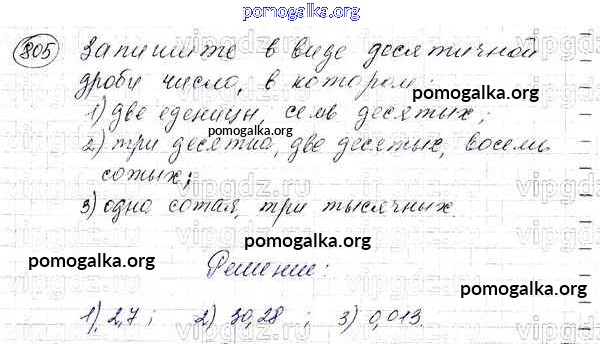 pomogalka.org
805 Запишите в виде десятичной
дроби число, в котором:
1) две еденицы, семь десятых;
pomogalka.org
pomogalka.org
2) три десятка, две десятых, восемь
сотых;
3) одна сотая, три тысячных.
pomogalka.org
pomogalka.org
Решение:
pomogalka.org
1) 2,7; 2) 30,28; 3) 0,013.
pomogalka.org